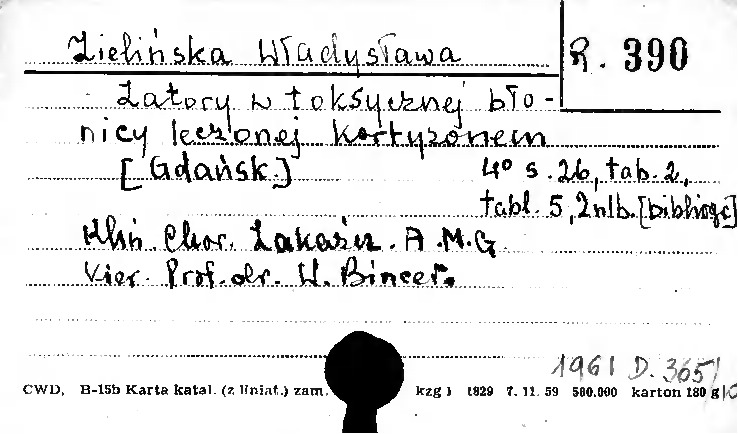 Zielińska Władysława
R. 390
Zatory w toksycznej bło-
nicy leczonej kortyzonem
[Gdańsk.]
4° s. 26, tab. 2,
tabl. 5, 2 nlb. [bibliogr]
Klin. Chor. Zakaźn. A.M.G.
Kier. Prof. dr. W. Bincer.
1961 D. 365/
CWD, B-15b Karta katal. (z liniat.) zam. kzg 1829 7. 11. 59 500.000 karton 180 g